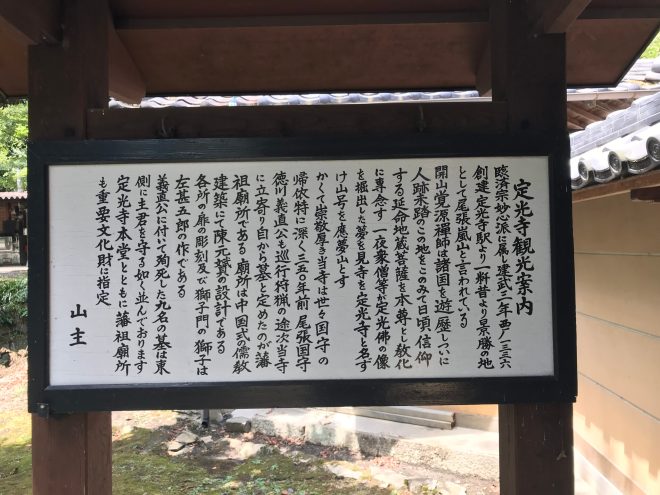 定光寺観光案内
臨済宗妙心派に属し建武三年西ノ一三三六
創建定光寺駅より一粁昔より景勝の地
として尾張嵐山と言われている
開山覚源禅師は諸国を遊歴しついに
人跡未踏のこの地をこのみて日頃信仰
する延命地蔵菩薩を本尊とし教化
に専念す一夜衆僧等が定光佛の像
を掘出した夢を見寺を定光寺と名す
け山号を應夢山とす
かくて崇敬厚き当寺は世々国守の
帰依特に深く三五〇年前尾張国守
徳川義直公も巡行狩猟の途次当寺
に立寄り自から墓と定めたのが藩
祖廟所である廟所は中国式の儒教
建築にて陳元贇の設計である
各所の扉の彫刻及び獅子門の獅子は
左甚五郎の作である
義直公に付いて殉死した九名の墓は東
側に主君を守る如く並んでおります
定光寺本堂とともに藩祖廟所
も重要文化財に指定
山主